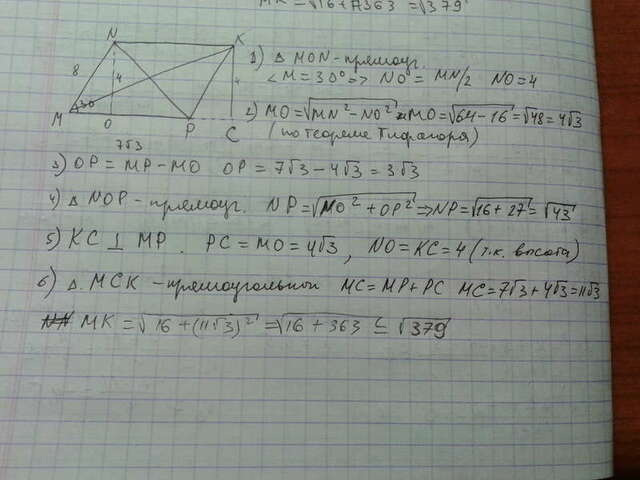 MK = √16 + 363 = √379
N K
8 4
M 30 O P C
7√3
1) Δ MON - прямоуг.
∠M = 30° => NO = MN/2 NO = 4
2) MO = √MN² - NO² MO = √64 - 16 = √48 = 4√3
(по теореме Пифагора)
3) OP = MP - MO OP = 7√3 - 4√3 = 3√3
4) Δ NOP - прямоуг. NP = √NO² + OP² => NP = √16 + 27 = √43
5) KC ⊥ MP. PC = MO = 4√3, NO = KC = 4 (т.к. высота)
6) Δ MCK - прямоугольный MC = MP + PC MC = 7√3 + 4√3 = 11√3
MK = √16 + (11√3)² = √16 + 363 = √379